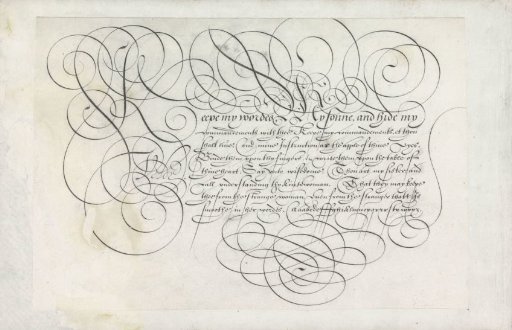 Keepe my wordes, My sonne, and hide my
commandements with thee Keepe my commandements, & thou
shalt liue, and mine instruction as the apple of thine Eyes.
Binde them vpon thy fingers & write them vpon the table of
thine heart. Say vnto wisdome Thou art my sister: and
call vnderstanding thy kinswoman. That they may keepe
thee from the strange woman, euen from the stranger that is
smoothe in her wordes.